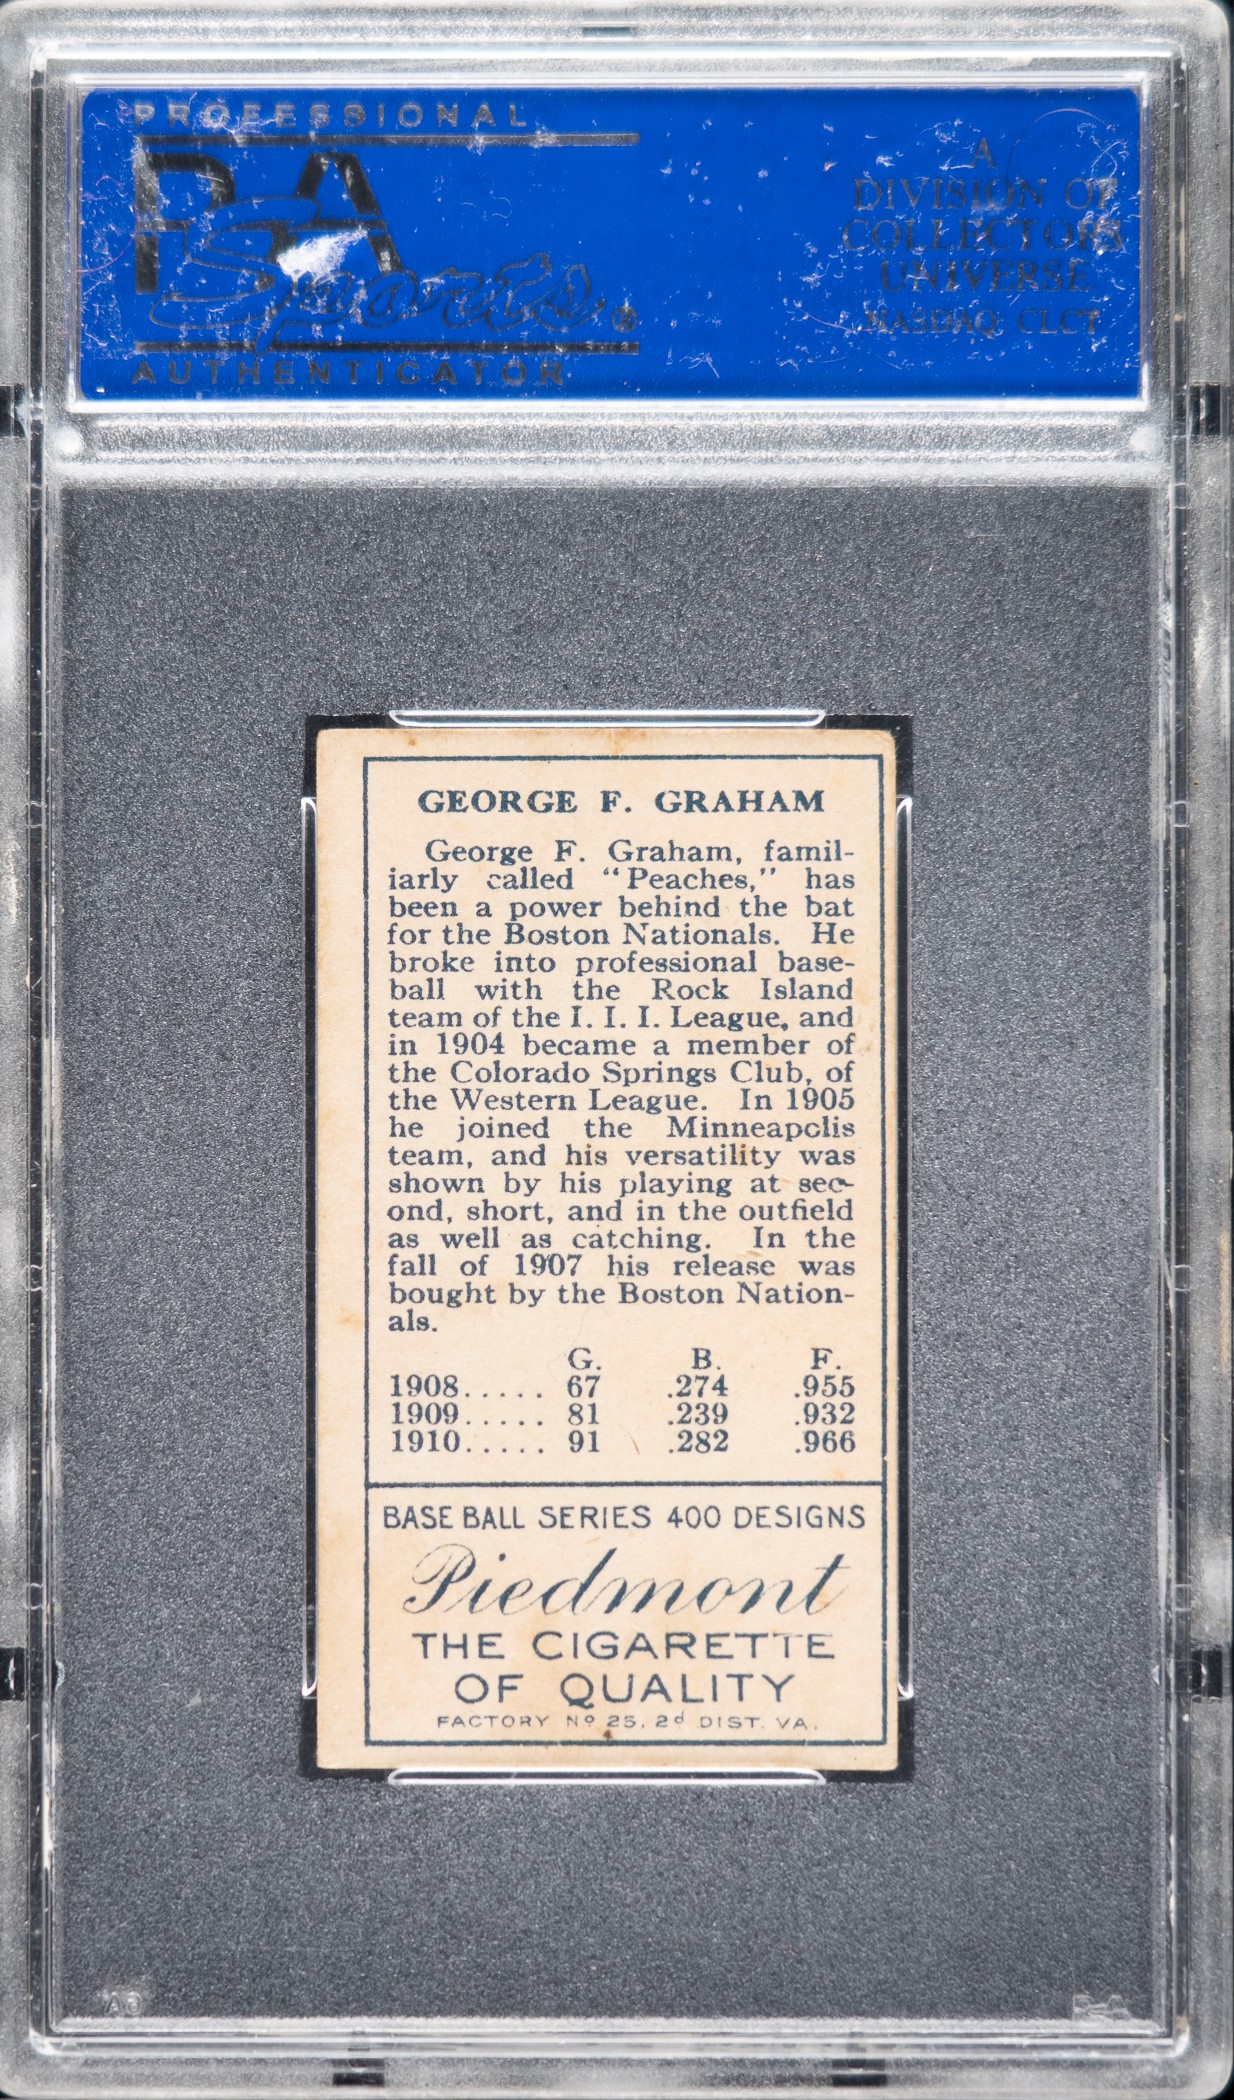 PROFESSIONAL
PSA
Sports®
AUTHENTICATOR
A
DIVISION OF
COLLECTORS
UNIVERSE
NASDAQ CLCT
GEORGE F. GRAHAM
George F. Graham, famil-
iarly called “Peaches,” has
been a power behind the bat
for the Boston Nationals. He
broke into professional base-
ball with the Rock Island
team of the I. I. I. League, and
in 1904 became a member of
the Colorado Springs Club, of
the Western League. In 1905
he joined the Minneapolis
team, and his versatility was
shown by his playing at sec-
ond, short, and in the outfield
as well as catching. In the
fall of 1907 his release was
bought by the Boston Nation-
als.
G. B. F.
1908..... 67 .274 .955
1909..... 81 .239 .932
1910..... 91 .282 .966
BASE BALL SERIES 400 DESIGNS
Piedmont
THE CIGARETTE
OF QUALITY
FACTORY Nº 25, 2d DIST. VA.
PSA